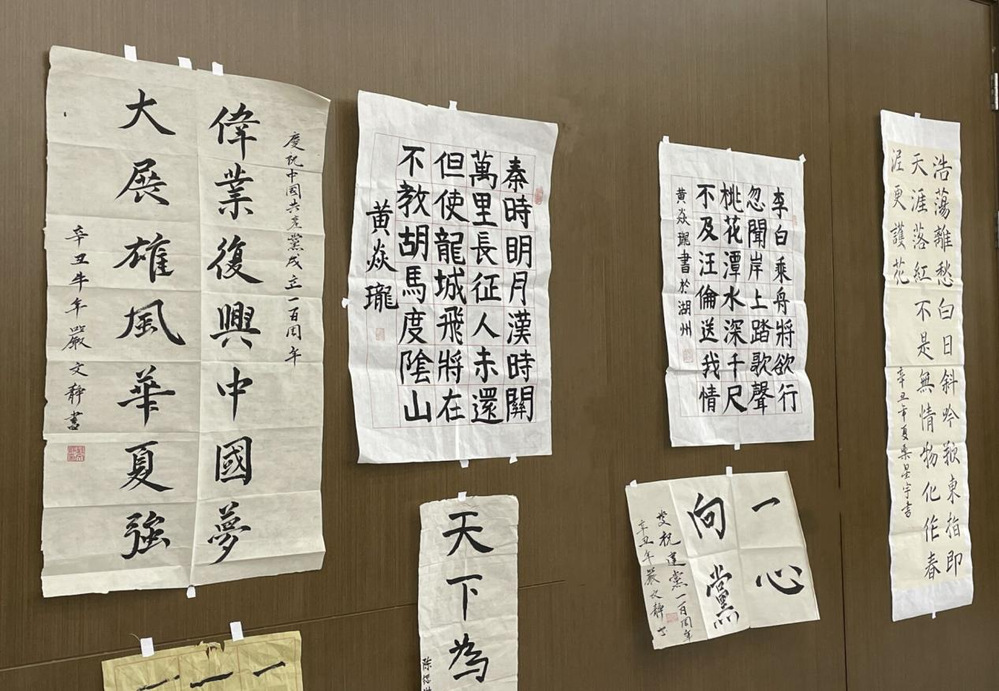 慶祝中国共產黨成立一百周年
偉業復興中國夢
大展雄風華夏強
辛丑牛年嚴文靜書
秦時明月漢時關
萬里長征人未還
但使龍城飛將在
不教胡馬度陰山
黃焱瓏
李白乘舟將欲行
忽聞岸上踏歌聲
桃花潭水深千尺
不及汪倫送我情
黃焱瓏書於湖州
浩蕩離愁白日斜吟鞭東指即
天涯落紅不是無情物化作春
泥更護花
辛丑年夏
天下為
陳
一心
向黨
慶祝建黨一百周年
辛丑年嚴文靜書